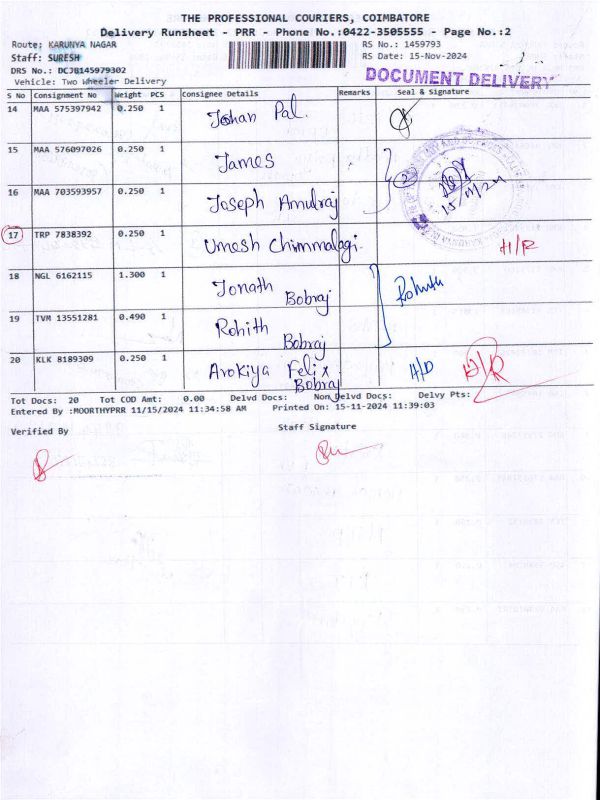 THE PROFESSIONAL COURIERS, COIMBATORE
Delivery Runsheet - PRR - Phone No.:0422-3505555 - Page No.:2
Route: KARUNYA NAGAR RS No.: 1459793
Staff: SURESH RS Date: 15-Nov-2024
DRS No.: DCJB145979302
Vehicle: Two Wheeler Delivery
DOCUMENT DELIVERY
S No Consignment No Weight PCS Consignee Details Remarks Seal & signature
14 MAA 575397942 0.250 1 Johan Pal.
15 MAA 576097026 0.250 1 James
2
15/11/24
16 MAA 703593957 0.250 1 Joseph Amulraj
17 TRP 7838392 0.250 1 Umesh Chimmalagi. H/R
18 NGL 6162115 1.300 1 Jonath Bobraj Rohith
19 TVM 13551281 0.490 1 Rohith Bobraj
20 KLK 8189309 0.250 1 Arokiya Felix Bobraj H/D
Tot Docs: 20 Tot COD Amt: 0.00 Delvd Docs: Non Delvd Docs: Delvy Pts:
Entered By :MOORTHYPRR 11/15/2024 11:34:58 AM Printed On: 15-11-2024 11:39:03
Verified By Staff Signature